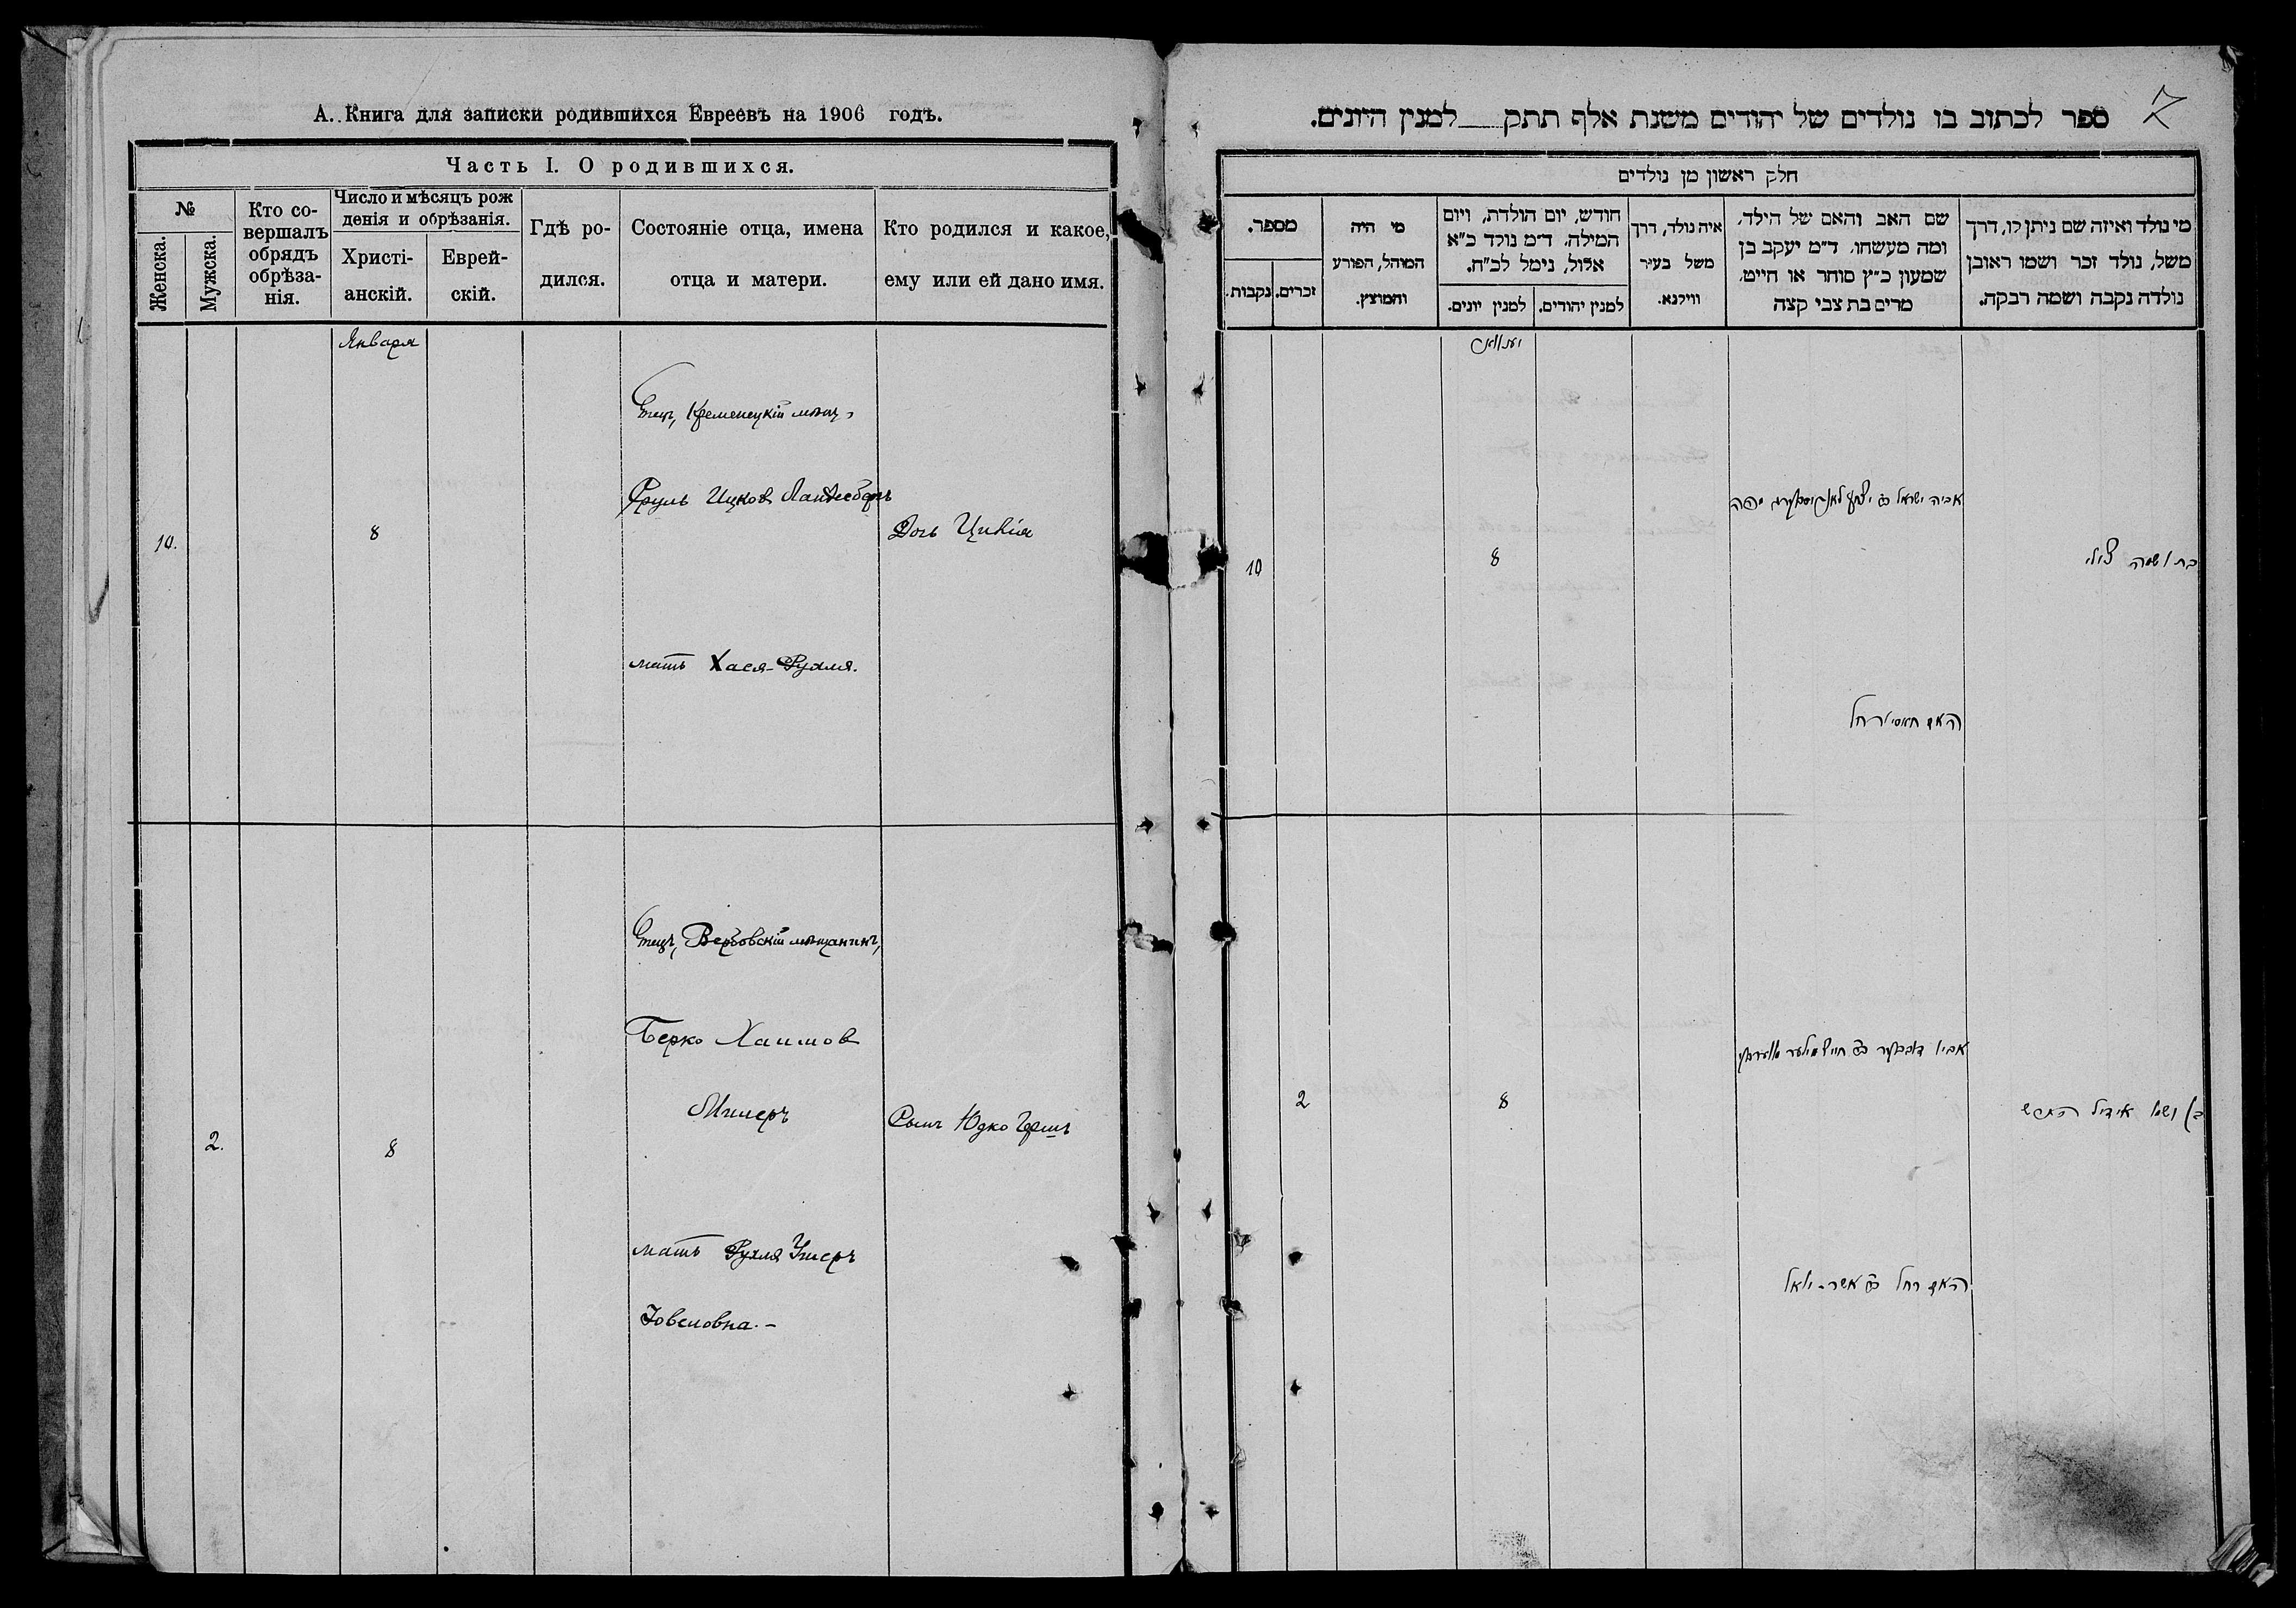 А. Книга для записки родившихся Евреевъ на 1906 годъ.
Часть I. О родившихся.
№
Женска.
Мужска.
Кто со-
вершалъ
обрядъ
обрѣза-
нія.
Число и мѣсяцъ рож
денія и обрѣзанія.
Христі-
анскій.
Еврей-
скій.
Гдѣ ро-
дился.
Состояніе отца, имена
отца и матери.
Кто родился и какое,
ему или ей дано имя.
Января
10.
8
Отецъ, Кременецкій мѣщ.
Сруль Ицков Ландесбергъ
мать Хася-Рухля.
Дочь Цивія
2.
8
Отецъ, Вербовскій мѣщанинъ,
Берко Хаимов
Милеръ
мать Рухля Ушеръ
Іовеловна.-
Сынъ Юдко Гершъ
7
ספר לכתוב בו נולדים של יהודים משנת אלף תתק___למנין היונים.
חלק ראשון מן נולדים
מספר.
נקבות.
זכרים.
מי היה
המוהל, הפורע
והמוצץ.
חודש, יום הולדת, ויום
המילה. ד״מ נולד כ״א
אלול, נימל לכ״ח.
למנין יונים.
למנין יהודים.
איה נולד, דרך
משל בעיר
ווילנא.
שם האב והאם של הילד.
ומה מעשהו. ד״מ יעקב בן
שמעון כ״ץ סוחר או חייט.
מרים בת צבי קצה
מי נולד ואיזה שם ניתן לו, דרך
משל, נולד זכר ושמו ראובן
נולדה נקבה ושמה רבקה.
יענואר
10
8
אביה ישראל ב״ר יצחק לאנדיסבערג
האם חאסי רחל
בת ושמה צילי
2
8
אביו בערקי ב״ר חיים מילער
האם רחל ב״ר אשר-יואל
בן ושמו אידיל הירש